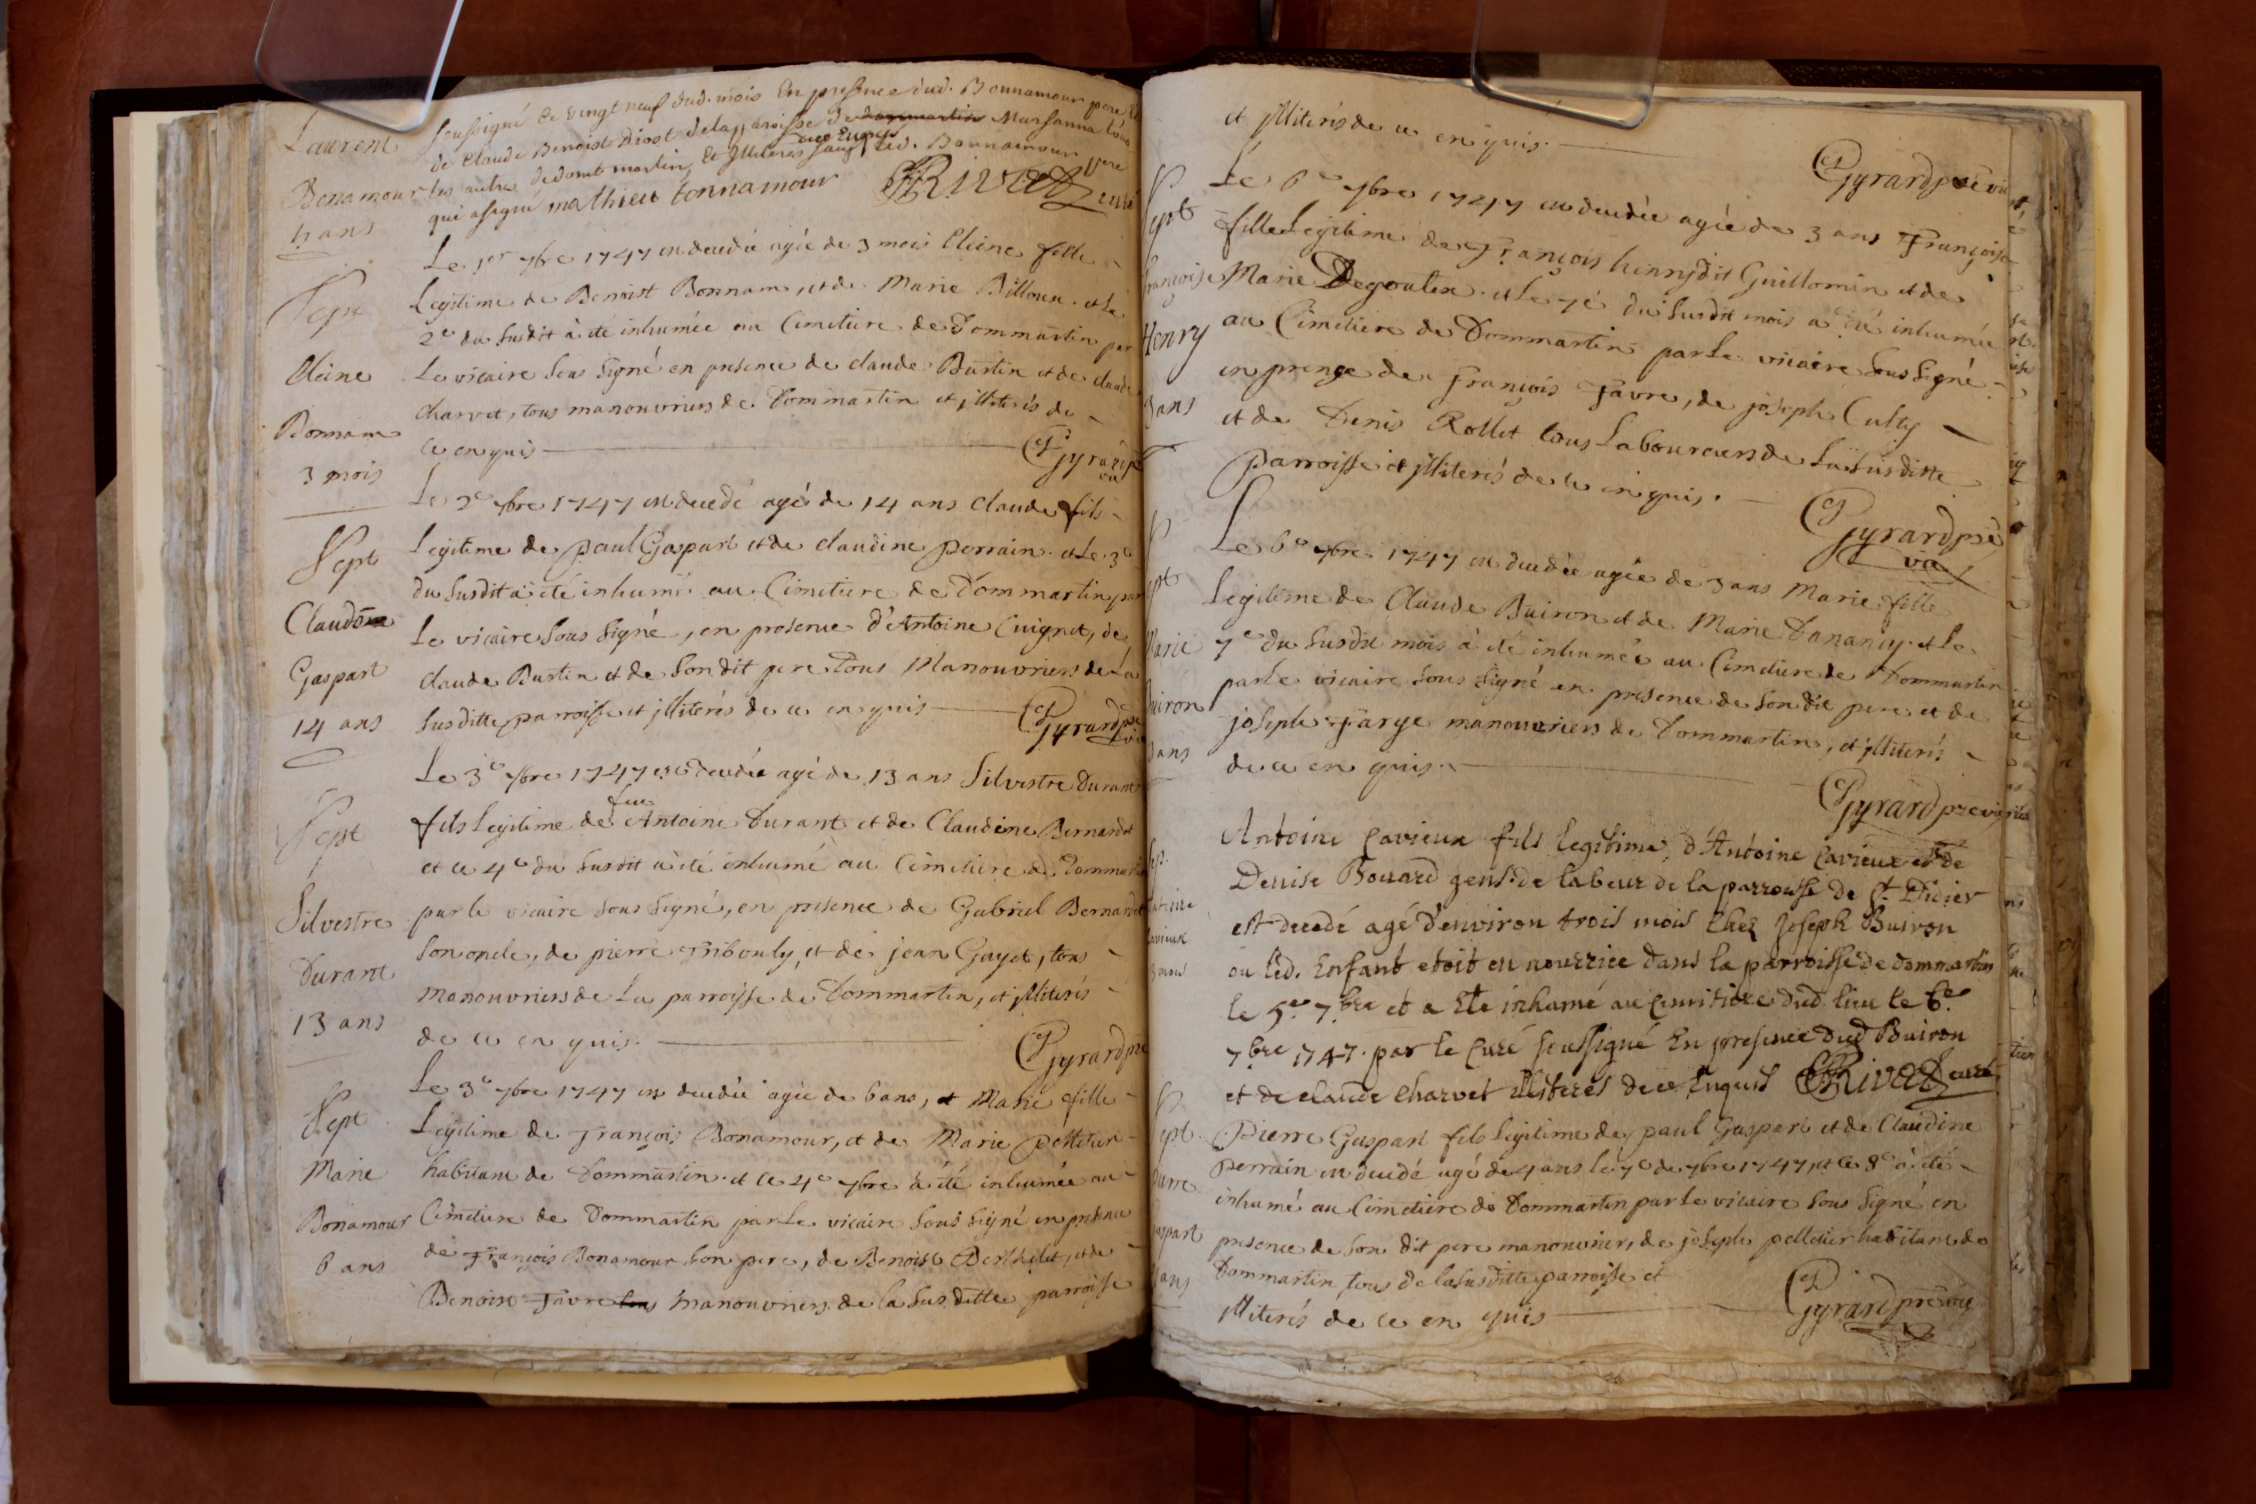 Laurent
Bonamour
ans
soussigné le vingt neuf dud. mois En presence dud. Bonnamour pere Et
de Claude Benoist Diost de la parroisse de dommartin
les autre de domt martin, Et Illiteres de ce Enquis sauf led. Bonnamour pere
qui a signé mathieu bonnamour Rivat curé
Sept
Cleine
Bonnam
3 mois
Le 1er 7bre 1747 est decedée agée de 3 mois Cleine fille
Legitime de Benoist Bonnam, et de Marie Billoux. et le
2e du susdit à été inhumée au Cimetiere de Dommartin par
Le vicaire sous signé en presence de claude Burtin et de claude
Charvet, tous manouvriers de Dommartin et jlliterés de
ce enquis Gyrard pre vic
Sept
Claude
Gaspart
14 ans
Le 2e 7bre 1747 est decedé agé de 14 ans Claude fils
Legitime de paul Gaspart et de claudine perrain. et Le 3e
du susdit à été inhumé au Cimetiere de Dommartin par
Le vicaire sous signé, en presence d'Antoine Cuignet, de
claude Burtin et de son dit pere tous Manouvriers de La
susditte parroisse et jlliterés de ce enquis Gyrard pre vic
Sept
Silvestre
Durant
13 ans
Le 3e 7bre 1747 est decedée agé de 13 ans Silvestre Durant
fils legitime de feu Antoine Durant et de Claudine Bernardet
et ce 4e du susdit a été inhumé au Cimetiere de Dommartin
par le vicaire sous signé, en presence de Gabriel Bernardet
son oncle, de pierre Tribouly, et de jean Guyet, tous
manouvriers de La parroisse de Dommartin, et jlliterés
de ce enquis. Gyrard pre
Sept
Marie
Bonamour
6 ans
Le 3e 7bre 1747 est decedée agée de 6 ans, et Marie fille
Legitime de françois Bonamour, et de Marie pelletier
habitant de Dommartin. et ce 4e 7bre à été inhumée au
Cimetiere de Dommartin par Le vicaire sous signé en presence
de françois Bonamour son pere, de Benoist Berthelet, et de
Benoist Favre tous manouvriers de la susditte parroisse
et jlliterés de ce enquis. Gyrard pre vic
Sept
françoise
Henry
3 ans
Le 6e 7bre 1747 est decedée agée de 3 ans Françoise
fille Legitime de François henry dit Guillomin et de
Marie Degoulex. et Le 7e du susdit mois a été inhumée
au Cimetiere de Dommartin par Le vicaire sous signé
en presnce de François Favre, de joseph Culty
et de Denis Rollet tous Laboureurs de La susditte
parroisse et jlliterés de ce enquis. Gyrard pre vic
ept
Marie
Buiron
3 ans
Le 6e 7bre 1747 est decedée agée de 3 ans Marie fille
Legitime de Claude Buiron et de Marie Danancy. et Le
7e du susdit mois à été inhumée au Cimetiere de Dommartin
par Le vicaire sous signé en presence de son dit pere et de
joseph Farge manouvriers de Dommartin, et jlliterés
de ce enquis. Gyrard pre vic
Sep.
Antoine
Cavieux
3 mois
Antoine Cavieux fils legitime, d'Antoine Cavieux et de
Denise Bouard gens de labeur de la parroisse de St. Didier
est decedé agé d'environ trois mois Chez Joseph Buiron
ou led. Enfant etoit en nourrice dans la parroisse de dommartin
le 5e. 7bre et a Ete inhumé au cimitiere dud. lieu le 6e
7bre 1747. par le curé soussigné En presence dud Buiron
et de claude Charvet illiteres de ce Enquis Rivat curé
ept
pierre
Gaspart
4 ans
Pierre Gaspart fils legitime de paul Gaspart et de Claudine
perrain est decedé agé de 4 ans le 7e de 7bre 1747, et ce 8e à été
inhumé au Cimetiere de Dommartin par Le vicaire sous signé en
presence de son dit pere manouvrier, de joseph pelletier habitant de
Dommartin tous de la susditte parroisse et
jlliterés de ce enquis Gyrard pre vic